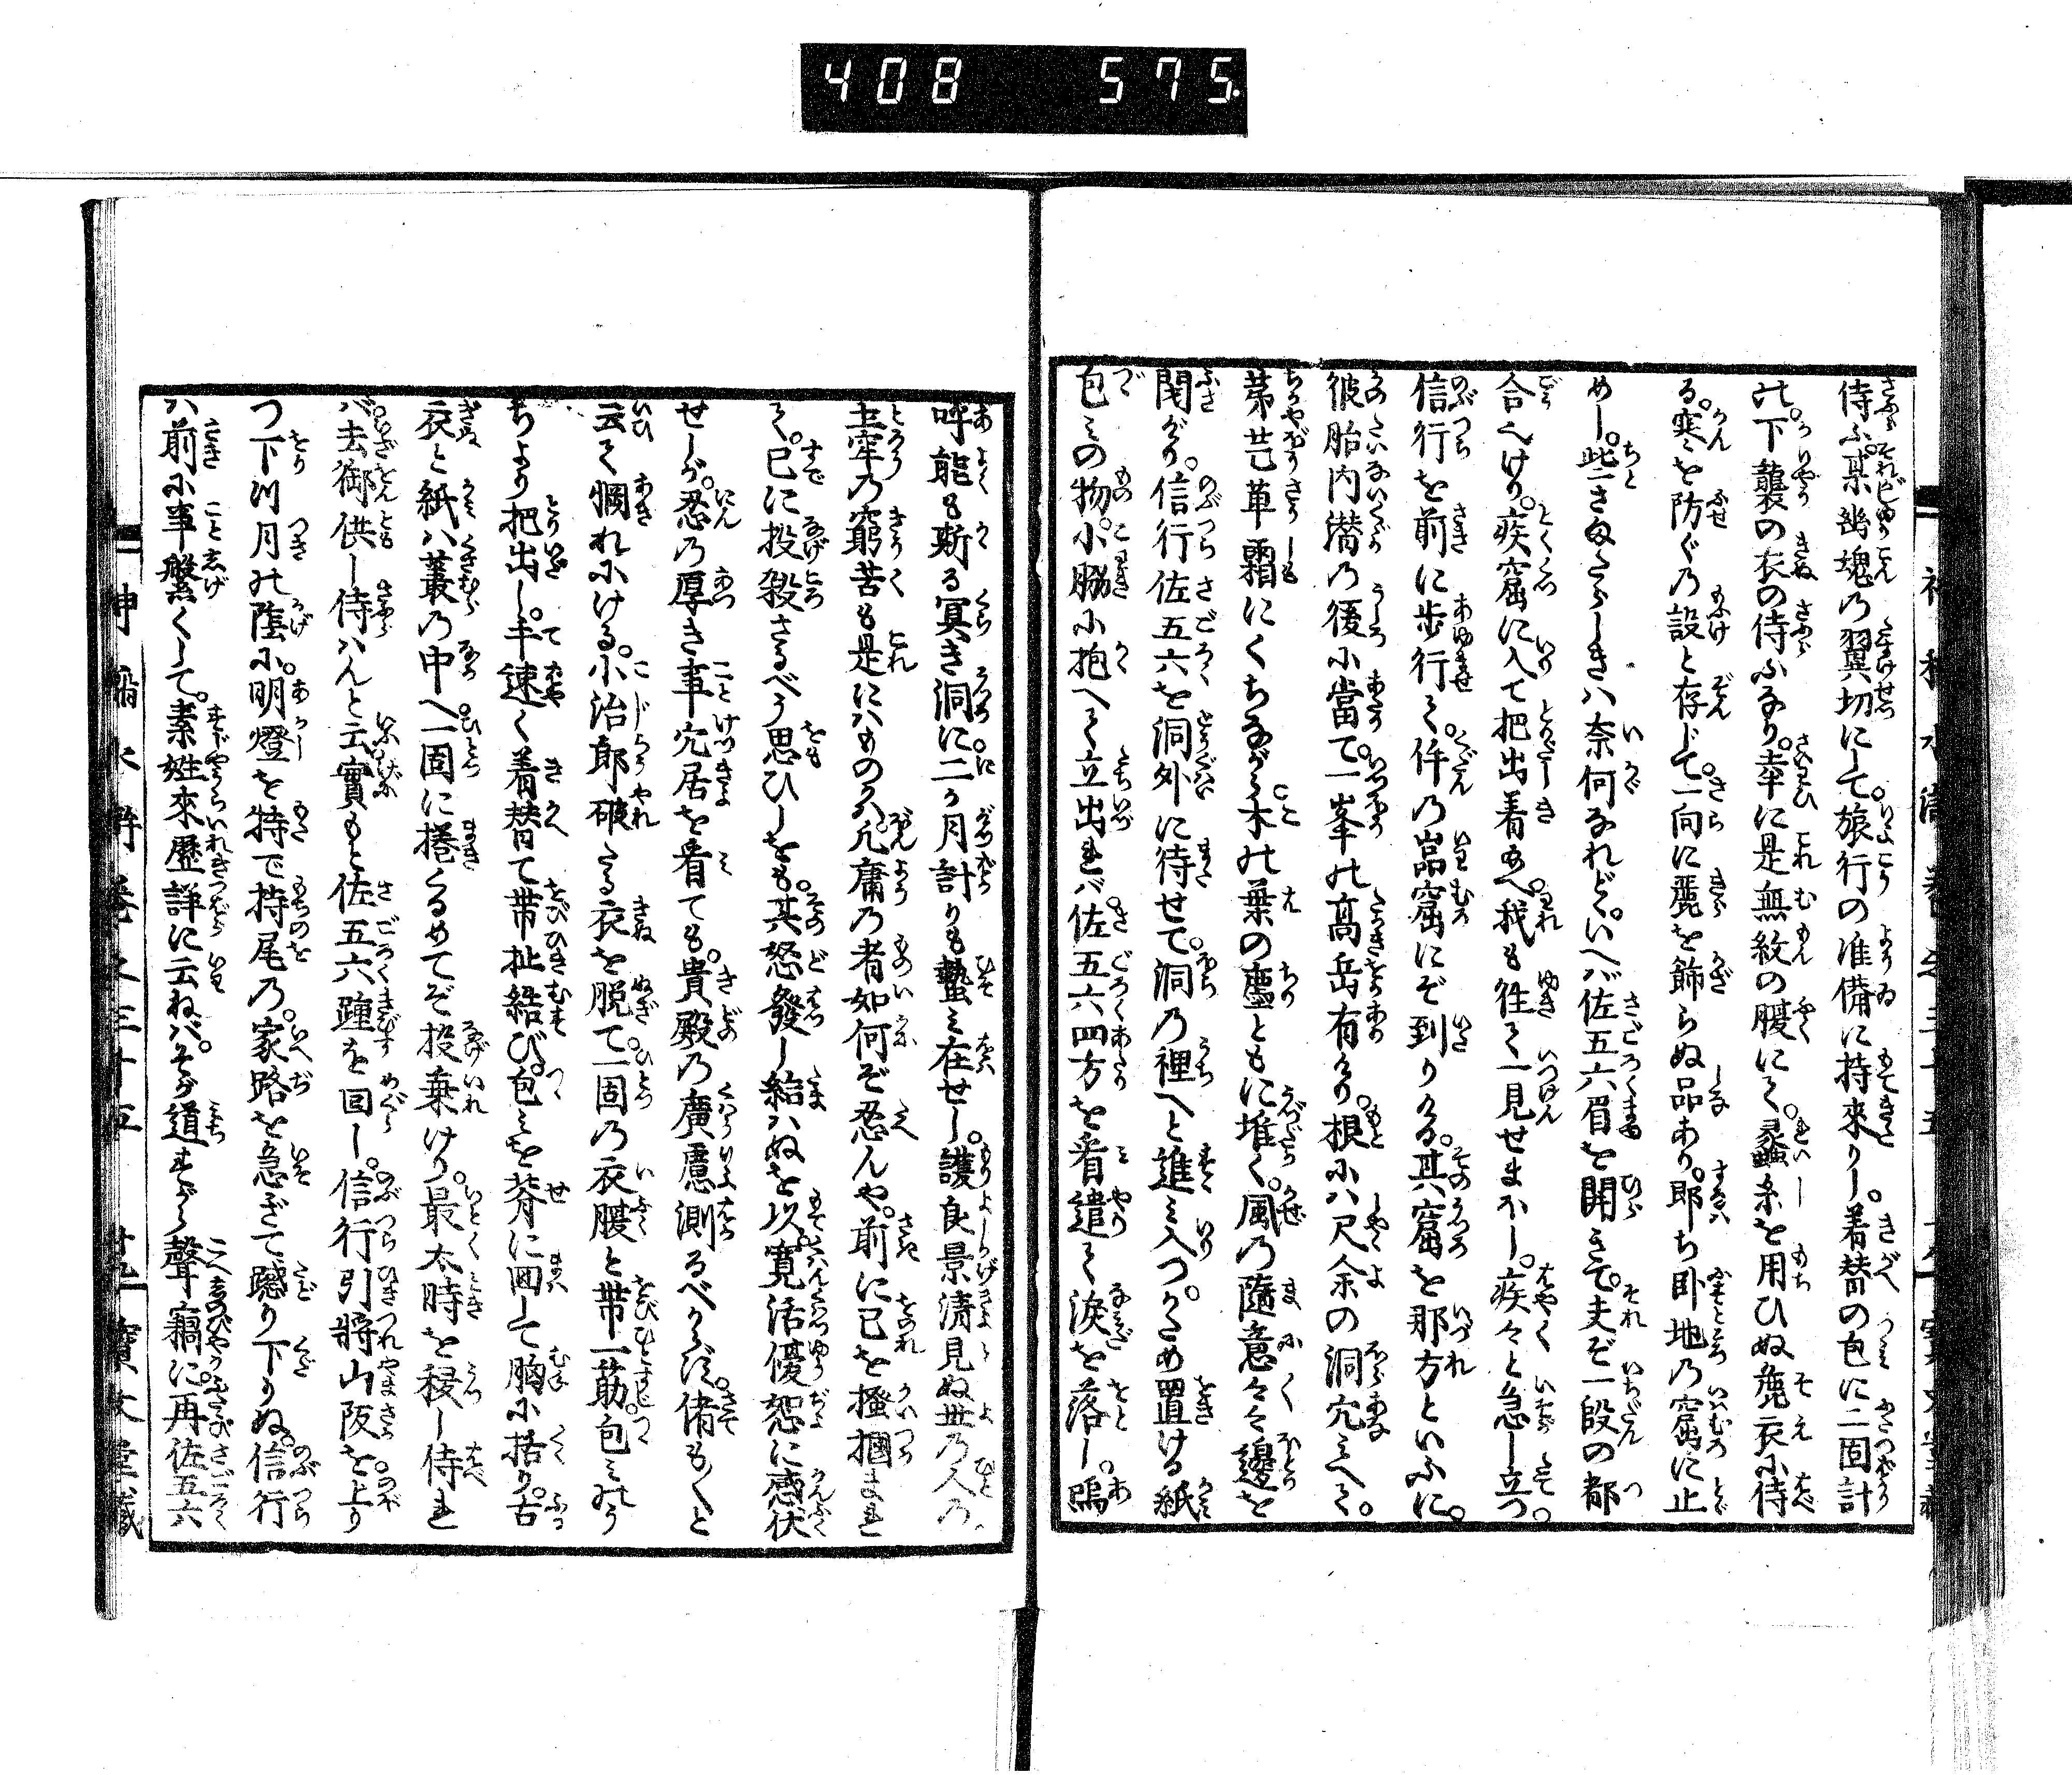 408 575.
侍ふ。某幽魂の翼切にして。旅行の准備に持來りし。着替の包に二固計
の。下襲の衣の侍ふなり。幸に是無紋の服にて。蠶糸を用ひぬ麁衣に侍
る。寒を防ぐの設と存じて。一向に麗を飾らぬ品あり。即ち卧地の窟に止
めし。些さゝしきハ奈何なれど。いへバ佐五六眉を開きて。夫ぞ一段の都
合へけり。疾窟に入て把出着へ。我も往て一見せまほし。疾々と急し立つ。
信行を前に歩行て。件の嵓窟にぞ到りける。其窟を那方といふに。
彼胎内潜の後に當て。一峯の高岳有けり。根にハ尺余の洞穴みへて。
茅芒草霜にくちながら。木の葉の塵ともに堆く。風の隨意々々邊を
閉がり。信行佐五六を洞外に待せて。洞の裡へと進み入つ。かため置ける紙
包みの物。小脇に抱へて立出れバ。佐五六四方を看遣て涙を落し。嗚
呼能も斯る冥き洞に。二ヶ月計りも蟄み在せし。護良景清見ぬ世の人の。
土牢の窮苦も是にハものかハ。凡庸の者如何ぞ忍んや。前に已を搔摑まれ
て。已に投殺さるべう思ひしをも。其怒發し給ハぬを以。寛活優恕に感伏
せしが。忍の厚き事穴居を看ても。貴殿の廣慮測るべからず。偖も〱と
云て惘れにける。小治郎破たる衣を脱て。一固の衣服と帯一筋。包みのう
ちより把出し。手速く着替て帯扯結び。包みを脊に回して胸に括り。古
衣と紙ハ叢の中へ。一固に捲くるめてぞ投棄けり。最太時を移し侍れ
バ。去御供し侍ハんと云。實もと佐五六踵を回し。信行引將山阪を。上り
つ下り月の蔭に。明燈を特で持尾の。家路を急ぎて躋り下りぬ。信行
ハ前に事繁くして。素姓來歴詳に云ねバ。そが道すがら聲竊に。再佐五六
神稲水滸巻之三十五 廿九 寶文堂藏